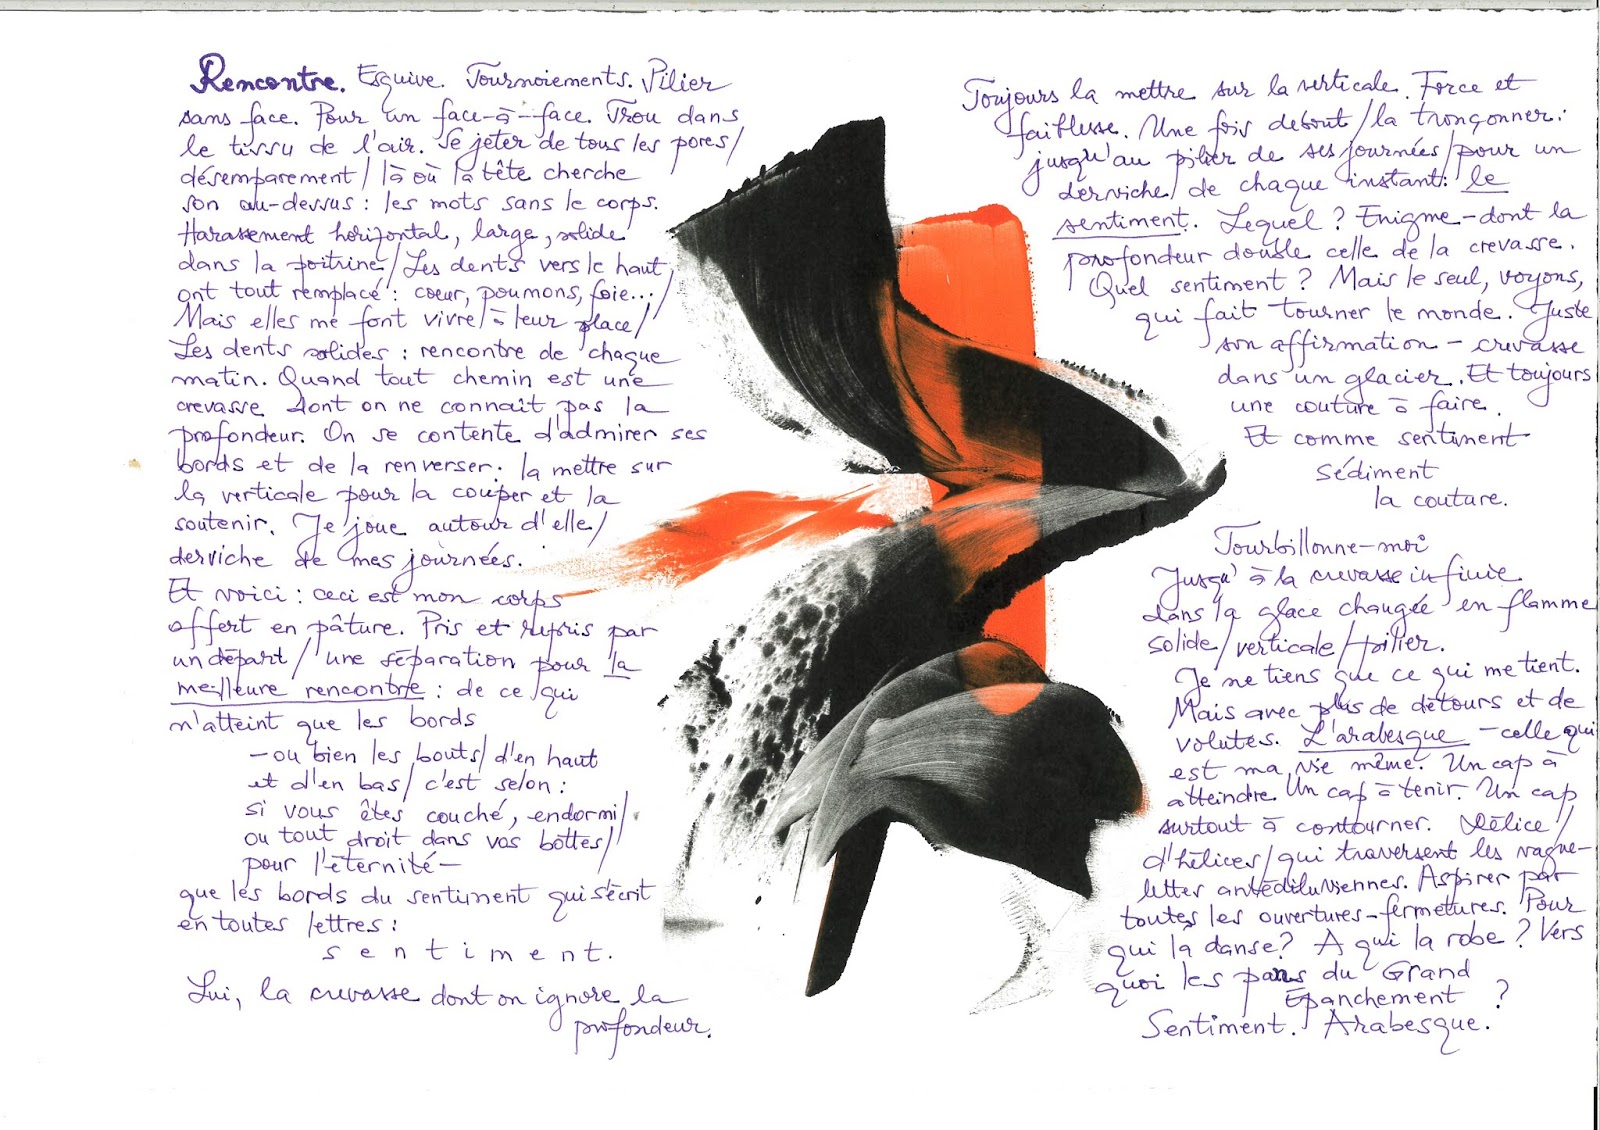 Rencontre. Esquive. Tournoiements. Pilier
sans face. Pour un face-à-face. Trou dans
le tissu de l'air. Se jeter de tous les pores/
désemparement/ là où la tête cherche
son au-dessus : les mots sans le corps.
Harassement horizontal, large, solide
dans la poitrine/ Les dents vers le haut
ont tout remplacé : coeur, poumons, foie.../
Mais elles me font vivre/ à leur place/
Les dents solides : rencontre de chaque
matin. Quand tout chemin est une
crevasse dont on ne connaît pas la
profondeur. On se contente d'admirer ses
bords et de la renverser : la mettre sur
la verticale pour la couper et la
soutenir. Je joue autour d'elle/
derviche de mes journées.
Et voici : ceci est mon corps
offert en pâture. Pris et repris par
un départ/ une séparation pour la
meilleure rencontre : de ce qui
n'atteint que les bords
— ou bien les bouts/ d'en haut
et d'en bas/ c'est selon :
si vous êtes couché, endormi/
ou tout droit dans vos bottes/
pour l'éternité —
que les bords du sentiment qui s'écrit
en toutes lettres :
s e n t i m e n t.
Lui, la crevasse dont on ignore la
profondeur.
Toujours la mettre sur la verticale. Force et
faiblesse. Une fois debout/ la tronçonner :
jusqu'au pilier de ses journées/ pour un
derviche/ de chaque instant : le
sentiment. Lequel ? Enigme - dont la
profondeur double celle de la crevasse.
Quel sentiment ? Mais le seul, voyons,
qui fait tourner le monde. Juste
son affirmation - crevasse
dans un glacier. Et toujours
une couture à faire.
Et comme sentiment
sédiment
la couture.
Tourbillonne-moi
Jusqu'à la crevasse infinie
dans la glace changée en flamme
solide/ verticale/ pilier.
Je ne tiens que ce qui me tient.
Mais avec plus de détours et de
volutes. L'arabesque - celle qui
est ma vie même. Un cap à
atteindre. Un cap à tenir. Un cap
surtout à contourner. Délice/
d'hélices/ qui traversent les vague-
lettes antédiluviennes. Aspirer par
toutes les ouvertures-fermetures. Pour
qui la danse ? A qui la robe ? Vers
quoi les pans du Grand
Épanchement ?
Sentiment. Arabesque.